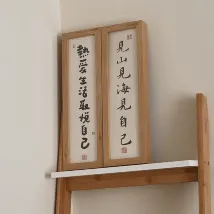 見山見海見自己
熱愛生活取悅自己